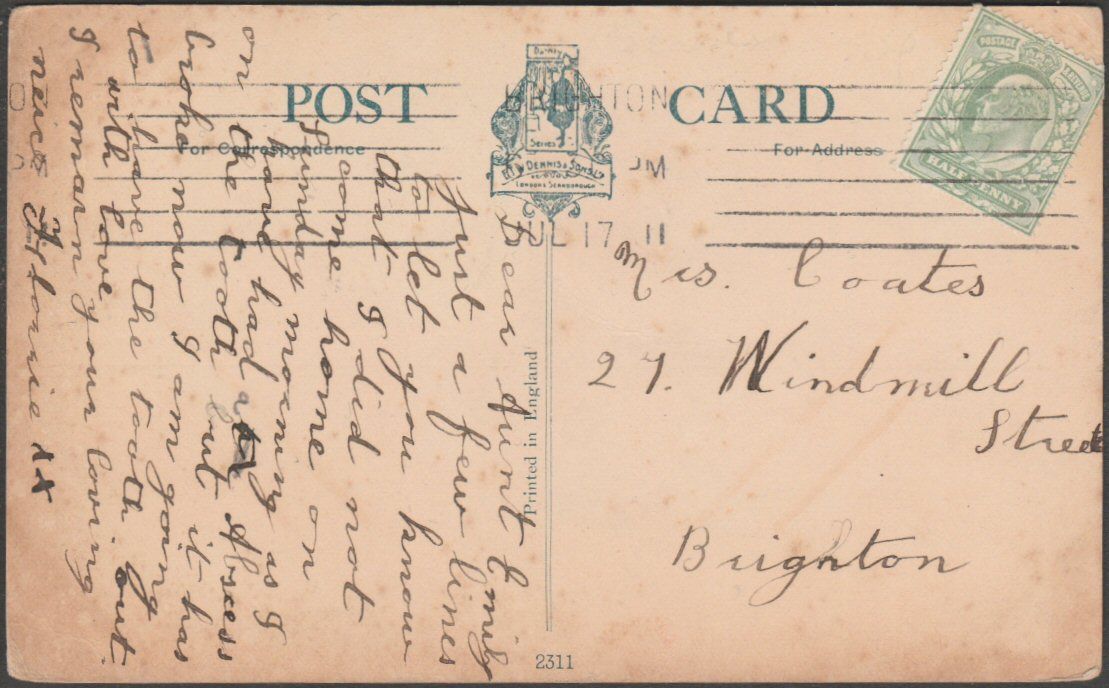 POST CARD
For Correspondence
For Address
Dainty
Series
E.T.W. DENNIS & SONS LD
LONDON & SCARBOROUGH
BRIGHTON
PM
JUL 17 11
POSTAGE
HALFPENNY
Dear Aunt Emily
Just a few lines
to let you know
that I did not
come home on
Sunday morning as I
have had a Abscess
on the tooth but it has
broke now I am going
to have the tooth out.
with love
I remain your loving
neice Florie xx
Mrs. Coates
27. Windmill
Street
Brighton
Printed in England
2311